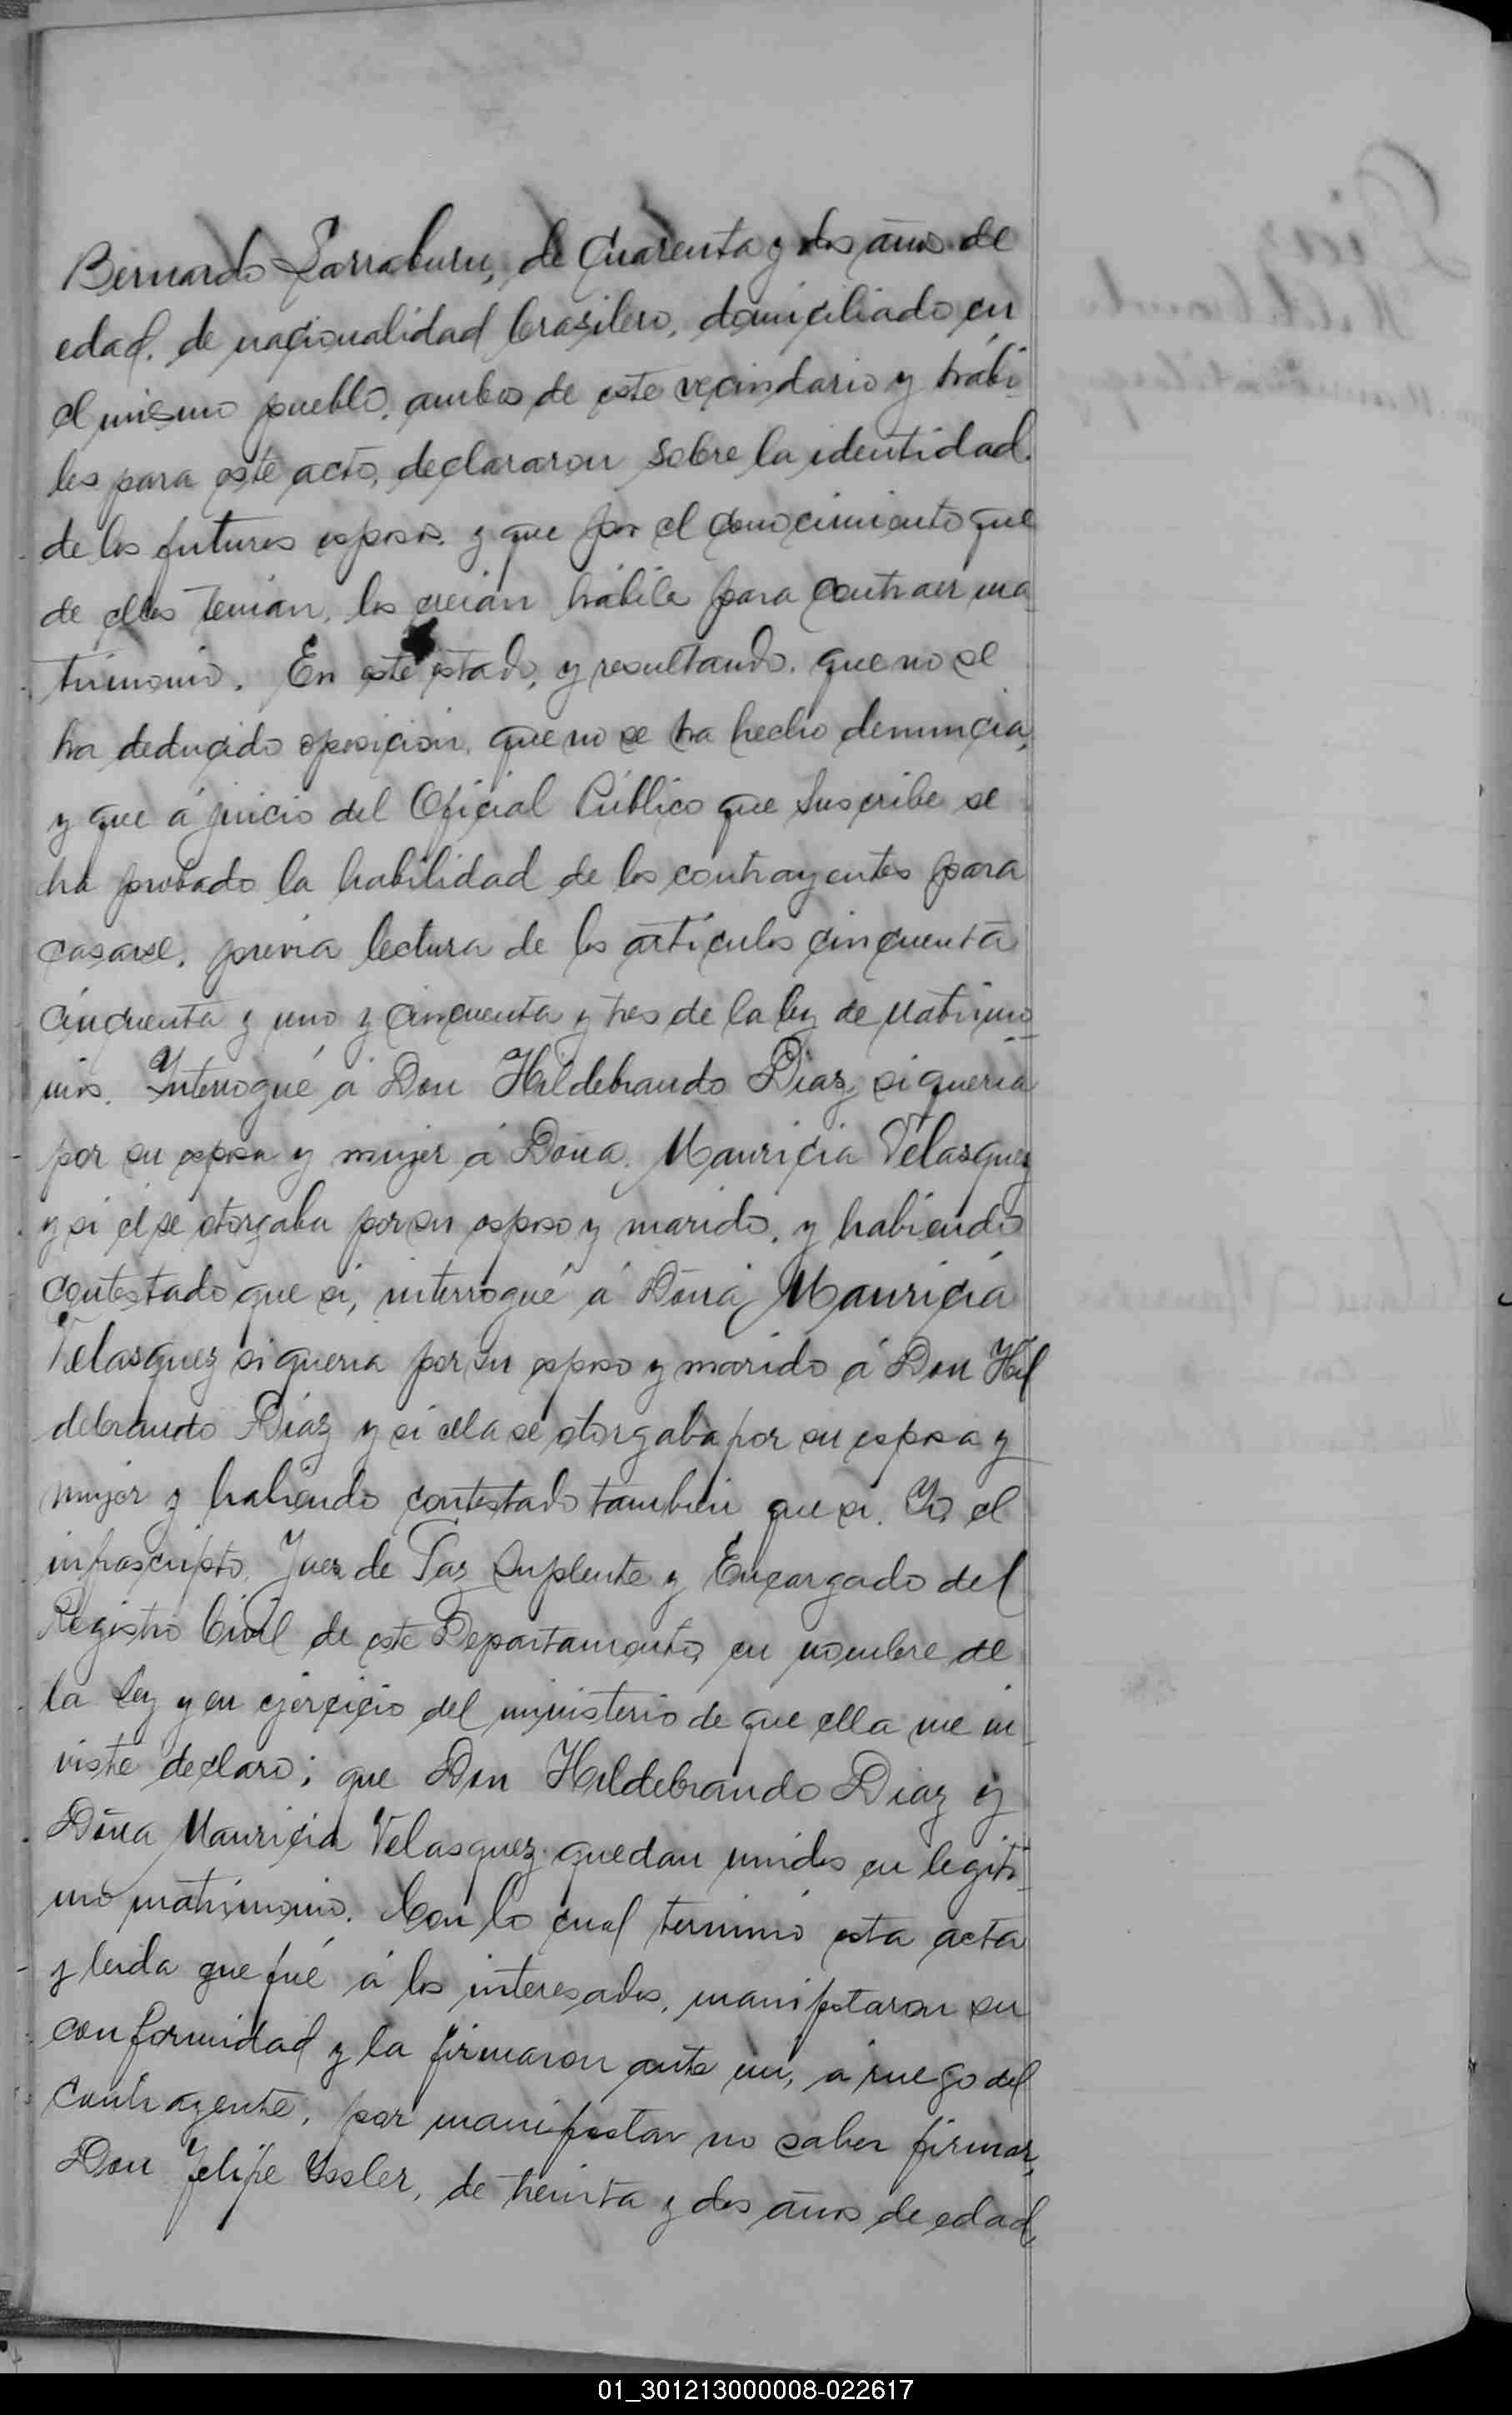 Bernardo Larraburu, de Cuarenta y dos años de
edad, de nacionalidad brasilero, domiciliado en
el mismo pueblo, ambos de este vecindario y hábi
les para este acto, declararon sobre la identidad
de los futuros esposos y que por el conocimiento que
de ellos tenian, los creian hábiles para contraer ma
trimonio. En este estado, y resultando, que no se
ha deducido oposición, que no se ha hecho denuncia,
y que á juicio del Oficial Público que suscribe se
ha probado la habilidad de los contrayentes para
casarse, previa lectura de los artículos cincuenta
cincuenta y uno y cincuenta y tres de la ley de Matrimo
nios. Interrogué á Don Hildebrando Diaz, si queria
por su esposa y mujer á Doña Mauricia Velasquez
y si él se otorgaba por su esposo y marido, y habiendo
contestado que si, interrogué á Doña Mauricia
Velasquez si queria por su esposo y marido á Don Hil
debrando Diaz y si ella se otorgaba por su esposa y
mujer y habiendo contestado tambien que si. Yo, el
infrascripto, Juez de Paz Suplente y Encargado del
Registro Civil de este Departamento, en nombre de
la Ley y en ejercicio del ministerio de que ella me in
viste declaro; que Don Hildebrando Diaz y
Doña Mauricia Velasquez quedan unidos en legiti
mo matrimonio. Con lo cual terminó esta acta
y leida que fué á los interesados, manifestaron su
conformidad y la firmaron ante mi, á ruego del
contrayente, por manifestar no saber firmar,
Don Felipe Ussler, de treinta y dos años de edad,
01_301213000008-022617